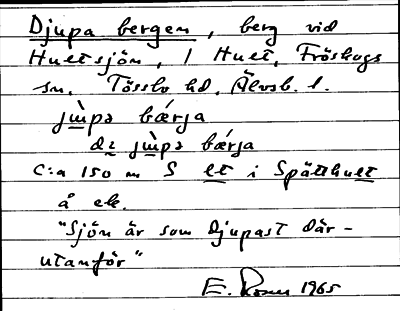 Djupa bergen, berg vid
Huetsjön, i Huet, Fröskogs
sn. Tössbo hd. Älvsb. l.
jɯ̀pə bǽrja
də jɯ̀pə bǽrja
c:a 150 m S et i Spätthuet
å ek.
"Sjön är som djupast där-
utanför"
E. 1965